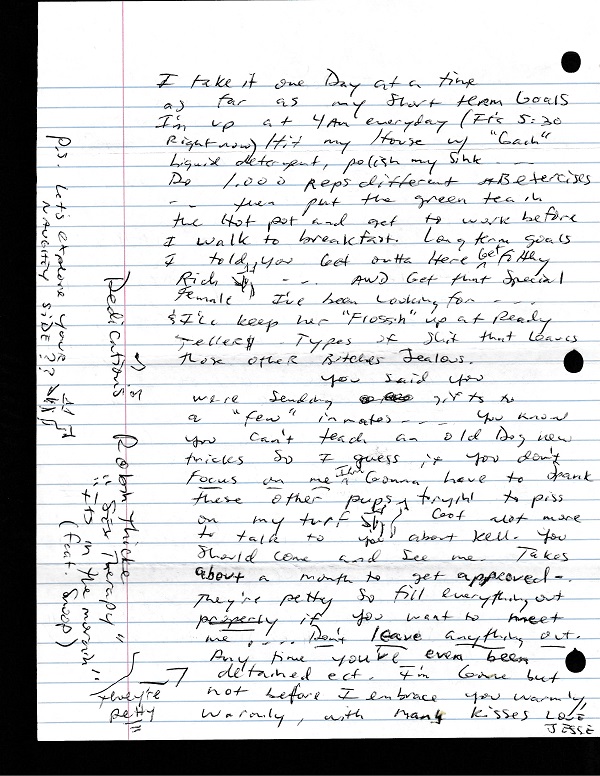 I take it one Day at a time
as far as my short term Goals
I'm up at 4AM everyday (It's 5:30
Right now) Hit my House w/ "Gach"
Liquid detergent, polish my sink ----
Do 1,000 Reps different ABexercises
--- then put the green tea in
the Hot pot and get to work before
I walk to breakfast. Long term goals
I told you Get outta Here Get Filthy
Rich --- AND Get that Special
Female I've been Looking for ----
& I'll keep her "Flossin" up at Ready
Tellers Types of shit that Leaves
those other Bitches Jealous.
You said you
were sending gifts to
a "few" inmates ---- You know
you can't teach an old Dog new
tricks So I guess if you don't
Focus on me I'm Gonna have to spank
these other pups tryin' to piss
on my turf Got alot more
to talk to you about kell. You
should come and see me. Takes
about a month to get approved-.
They're petty So fill everything out
properly if you want to meet
me.... Don't leave anything out.
Any time you've even been
detained ect. I'm Gone but
not before I embrace you warmly,
warmly, with many kisses LOVE
JESSE
they're
petty!!
Dedications Robin thicke
"Sex Therapy"
"in the mornin"
(feat. Snoop)
P.S. Let's explore your
NAUGHTY side??